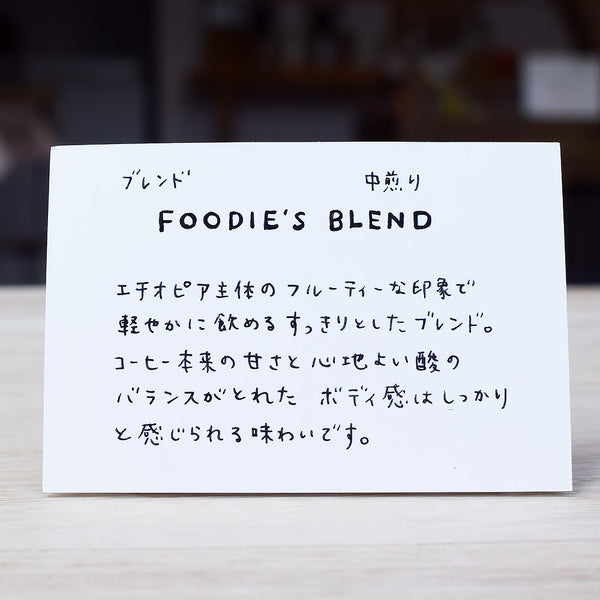 ブレンド 中煎り
FOODIE'S BLEND
エチオピア主体のフルーティーな印象で
軽やかに飲めるすっきりとしたブレンド。
コーヒー本来の甘さと心地よい酸の
バランスがとれた ボディ感はしっかり
と感じられる味わいです。